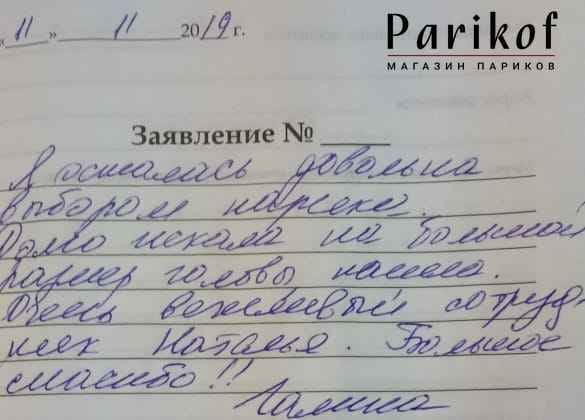 « 11 » 11 2019 г.
Parikof
МАГАЗИН ПАРИКОВ
Заявление № ____
Я осталась довольна
выбором парика.
Долго искала на большой
размер головы, нашла.
Очень вежливый сотруд
ник Наталья. Большое
спасибо!!
Галина